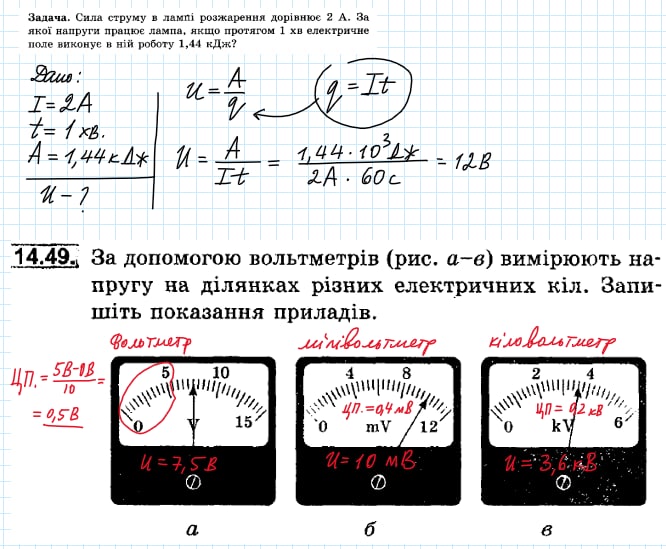 Задача. Сила струму в лампі розжарення дорівнює 2 А. За
якої напруги працює лампа, якщо протягом 1 хв електричне
поле виконує в ній роботу 1,44 кДж?
Дано:
I = 2А
t = 1 хв.
A = 1,44 кДж
U - ?
U = A/q
q = It
U = A/It = 1,44 · 10³ Дж / 2А · 60с = 12В
14.49. За допомогою вольтметрів (рис. а–в) вимірюють на-
пругу на ділянках різних електричних кіл. Запи-
шіть показання приладів.
Вольтметр
мілівольтметр
кіловольтметр
Ц.П. = 5В-0В/10 =
= 0,5 В
0 5 10 15
V
U = 7,5 В
0 4 8 12
Ц.П. = 0,4 мВ
mV
U = 10 мВ
0 2 4 6
ЦП = 0,2 кВ
kV
U = 3,6 кВ
а
б
в